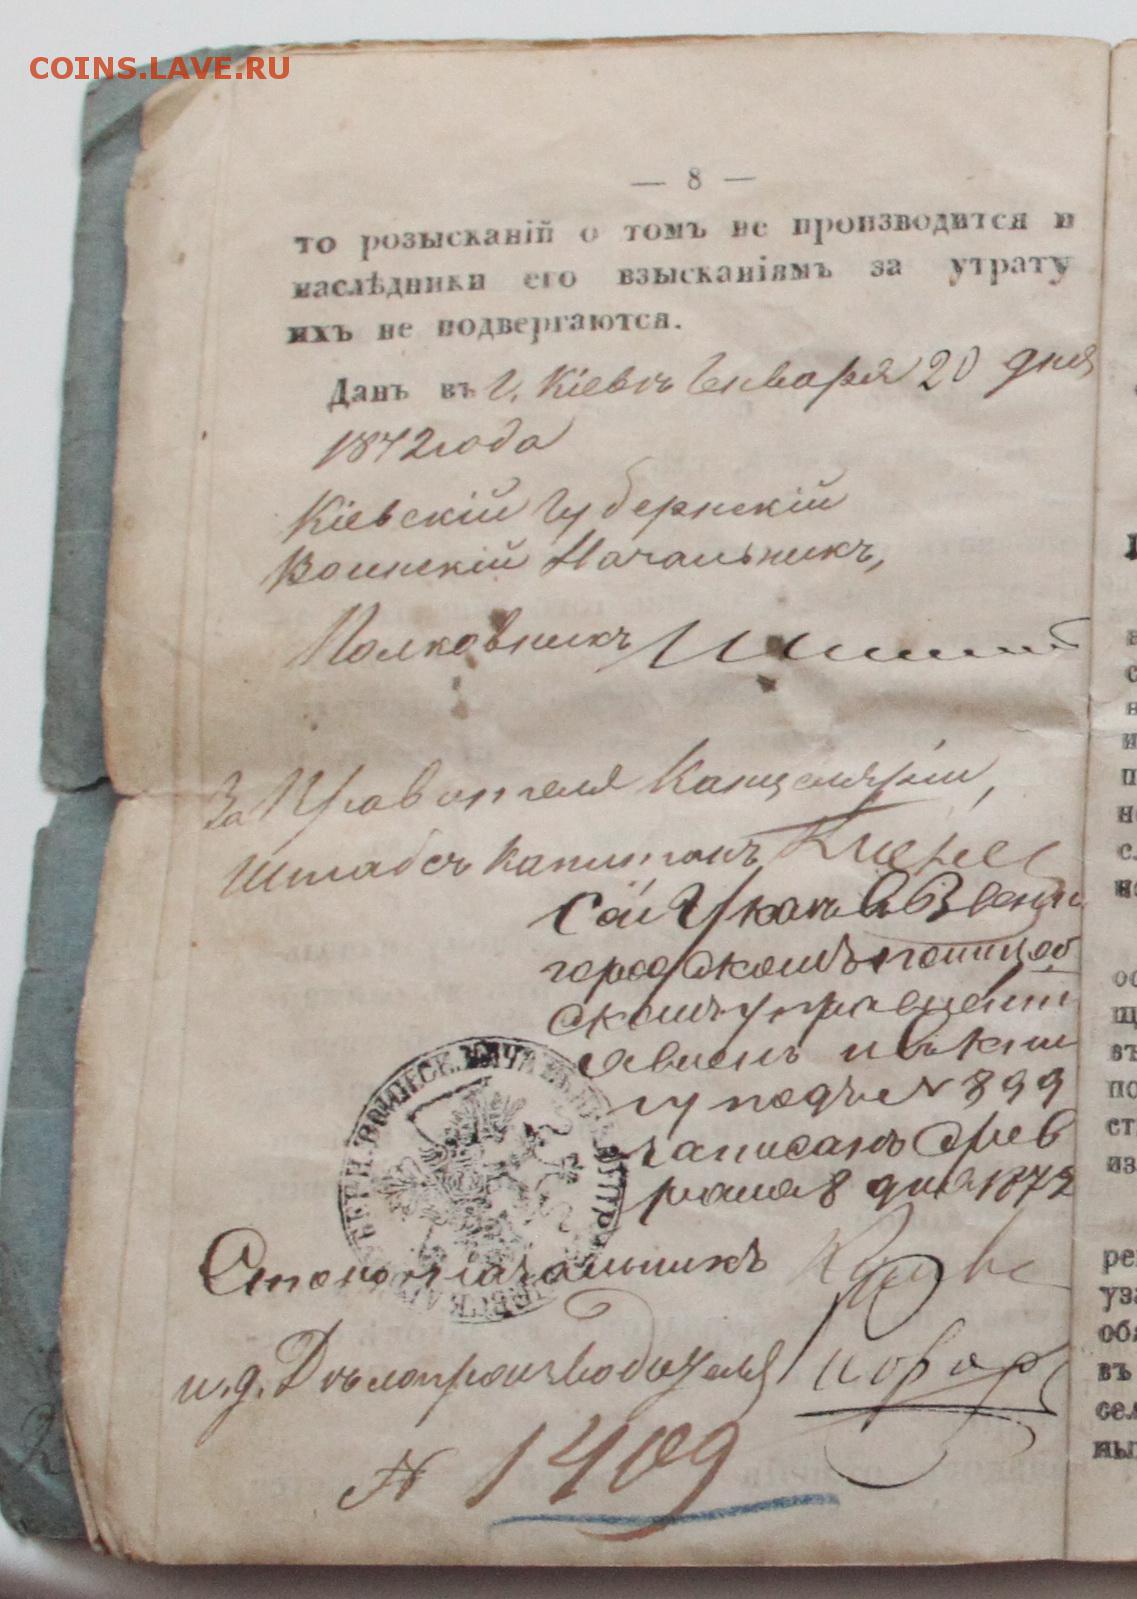 COINS.LAVE.RU
— 8 —
то розысканій о томъ не производится и
наслѣдники его взысканіямъ за утрату
ихъ не подвергаются.
Данъ въ г. Кіевѣ Генваря 20 дня
1872 года
Кіевскій Губернскій
Воинскій Начальникъ,
Полковникъ
За Правителя Канцеляріи,
Штабсъ Капитанъ
Сей Указъ въ Звени
городскомъ полицей
скомъ управленіи
явленъ и въ кни
гу подъ № 899
записанъ Фев
раля 8 дня 1872
Столоначальникъ
и. д. Дѣлопроизводителя
№ 1409